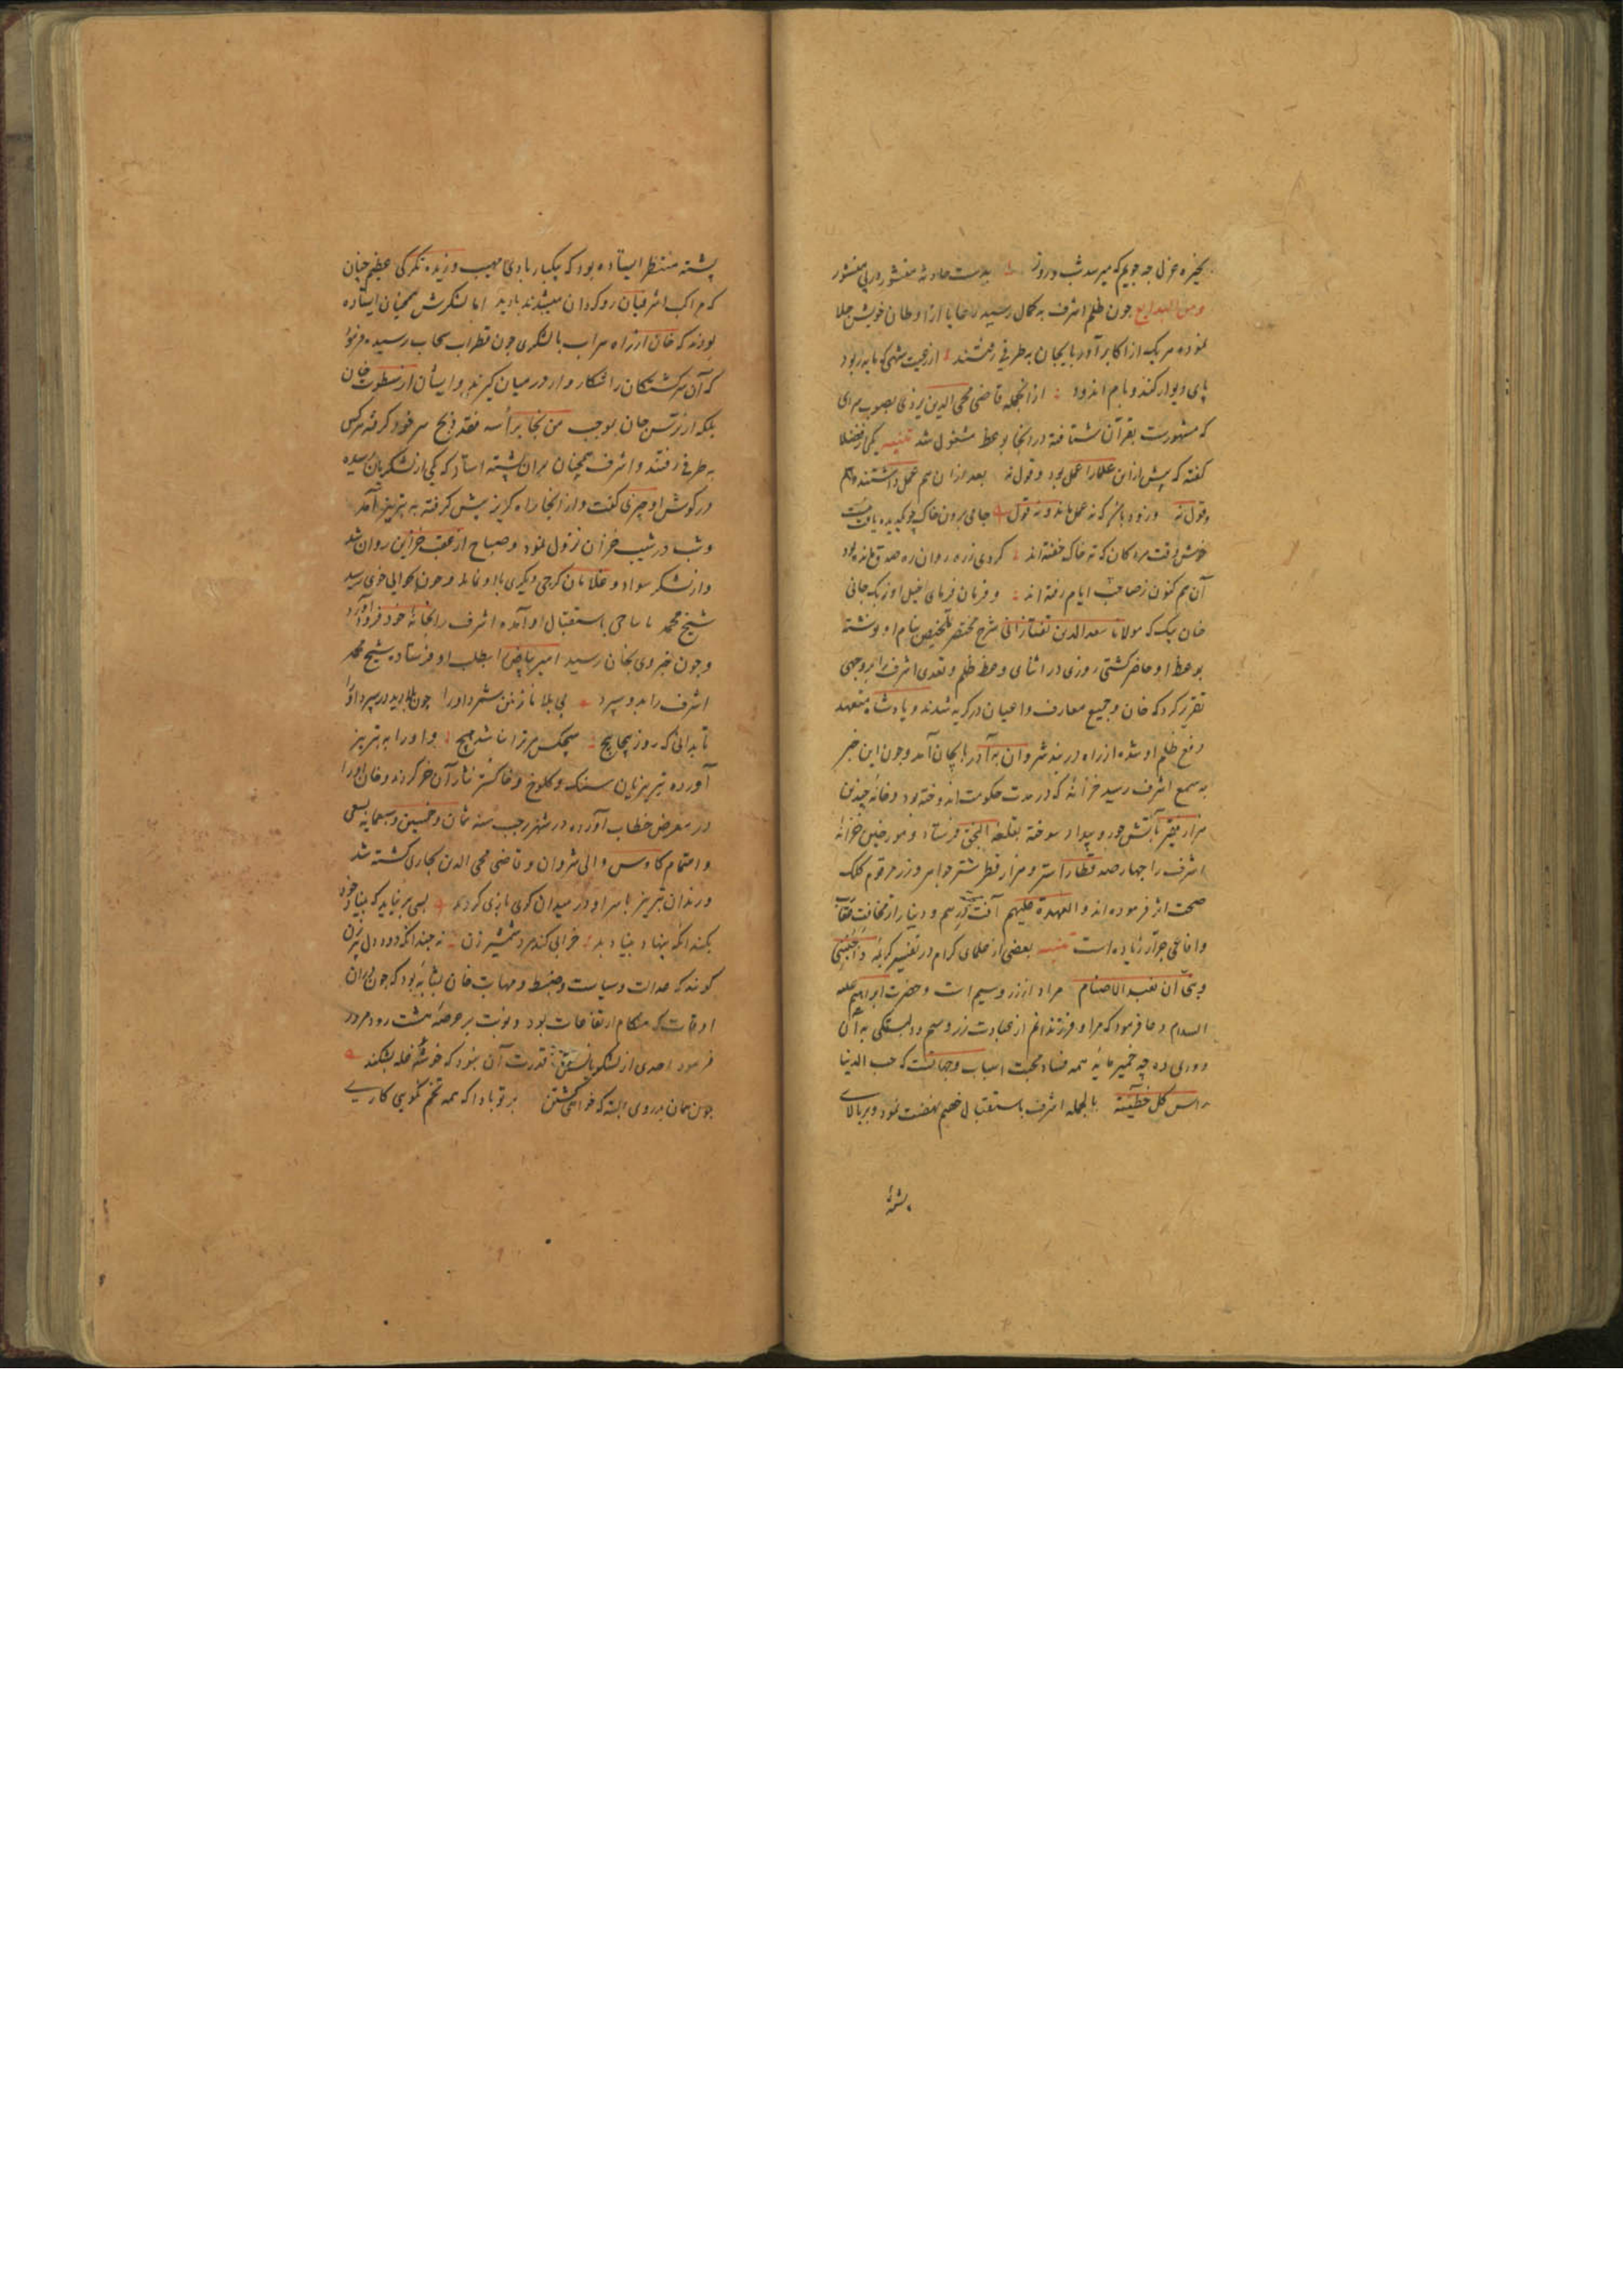 بخیره عزل چه جویم که میرسد شب و روز بدست حادثه منشور در پی منشور
ومن البدایع چون ظلم اشرف به کمال رسید رعایا از اوطان خویش جلا
نموده هریک از اکابر آذربایجان به طرفی رفتند از رعیت شهی که مایه ربود
پای دیوار کند و بام اندود از آنجمله قاضی محی الدین بردعی بصوب سرای
که مشهورست بقرآن شتافته در آنجا بوعظ مشغول شد تنبیه یکی از فضلا
گفته که پیش ازین علما را عمل بود و قول نه بعد از آن هم عمل داشتند و هم
وقول نه و زود باشد که نه عمل ماند و نه قول جامی برون خاک چو
خوش وقت مردگان که ته خاک خفته اند گردی زره روان ره صدق مانده بود
آن هم کنون ز صاحب ایام رفته اند و فرمان فرمای خیل اوزبک جانی
خان بیک که مولانا سعدالدین تفتازانی شرح مختصر تلخیص بنام او نوشته
بوعظ او حاضر گشتی روزی در اثنای وعظ ظلم و تعدی اشرف را بروجهی
تقریر کرد که خان و جمیع معارف و اعیان در گریه شدند و پادشاه متعهد
رفع ظلم او شده از راه دربند شروان به آذربایجان آمد و چون این خبر
به سمع اشرف رسید خزانهٔ که در مدت حکومت اندوخته بود و خانهٔ چندین
هزار فقیر بآتش جور و بیداد سوخته بقلعه النجق فرستاد و مورخین خزانهٔ
اشرف را چهارصد قطار استر و هزار قطار شتر جواهر و زر مرقوم کلک
صحت اثر فرموده اند و العهدة علیهم آفت درهم و دینار از مخافت عقارب
و افاعی جرار زیاده است تنبیه بعضی از علمای کرام در تفسیر کریمهٔ واجنبنی
وبنی آن نعبد الاصنام مراد از زر و سیم است و حضرت ابراهیم علیه
السلام دعا فرمود که مرا و فرزندانم از عبادت زر و سیم و دلبستگی به آن
دوری ده چه خمیرمایهٔ همه فساد محبت اسباب و جهانست که حب الدنیا
راس کل خطیئة بالجمله اشرف باستقبال خصم نهضت نمود و بر بالای
پشتهٔ
پشته منتظر ایستاده بود که یکبار بادی مهیب وزیده تگرگی عظیم چنان
که مراکب اشرفیان روگردان میشدند بارید اما لشکرش همچنان ایستاده
بودند که خان از راه سراب با لشکری چون قطرات سحاب رسیده فرمود
که آن سرگشتگان را شکار وار در میان گیرند و ایشان از سطوت خان
بلکه از ترس جان بموجب من نجا برأسه فقد ربح سر خود گرفته هرکس
به طرفی رفتند و اشرف همچنان بران پشته استاد که یکی از لشکریان رسیده
در گوش او چیزی گفت و از آنجا راه گریز پیش گرفته به تبریز آمد
و شب در شیب خزان نزول نمود و صباح از عقب خزاین روان شد
و از لشکر سواد و غلامان گرجی دیگری با او نماند و چون بحوالی خوی رسید
شیخ محمد باستقبال او آمده اشرف را بخانهٔ خود فرود آورد
و چون خبر وی بخان رسید امیر بیاض را بطلب او فرستاد شیخ محمد
اشرف را بدو سپرد بی بلا نازنین شمرد او را چون بلا دید در سپرد او را
تا بدانی که روز پیچاپیچ هیچکس مر ترا نباشد هیچ و او را به تبریز
آورده تبریزیان سنگ و کلوخ و خاکستر نثار آن خر کردند و خان او را
در معرض خطاب آورده در شهر رجب سنه ثمان و خمسین و سبعمایه بسعی
و اهتمام کاوس والی شروان و قاضی محی الدین بخاری کشته شد
و رندان تبریز با سر او در میدان گوی بازی کردند بسی برنیاید که بنیاد خود
بکند آنکه بنهاد بنیاد بد خرابی کند مرد شمشیر زن نه چندانکه دود دل پیرزن
گویند که عدالت و سیاست و ضبط و مهابت خان بمثابهٔ بود که چون دران
اوقات که هنگام ارتفاعات بود و نوبت بر عرصهٔ هشت رود مرور
فرمود احدی از لشکریانش قدرت آن نبود که خوشهٔ غله بشکند
چون همان بدروی البته که خواهی کشتن بر تو بادا که همه تخم نکویی کاری